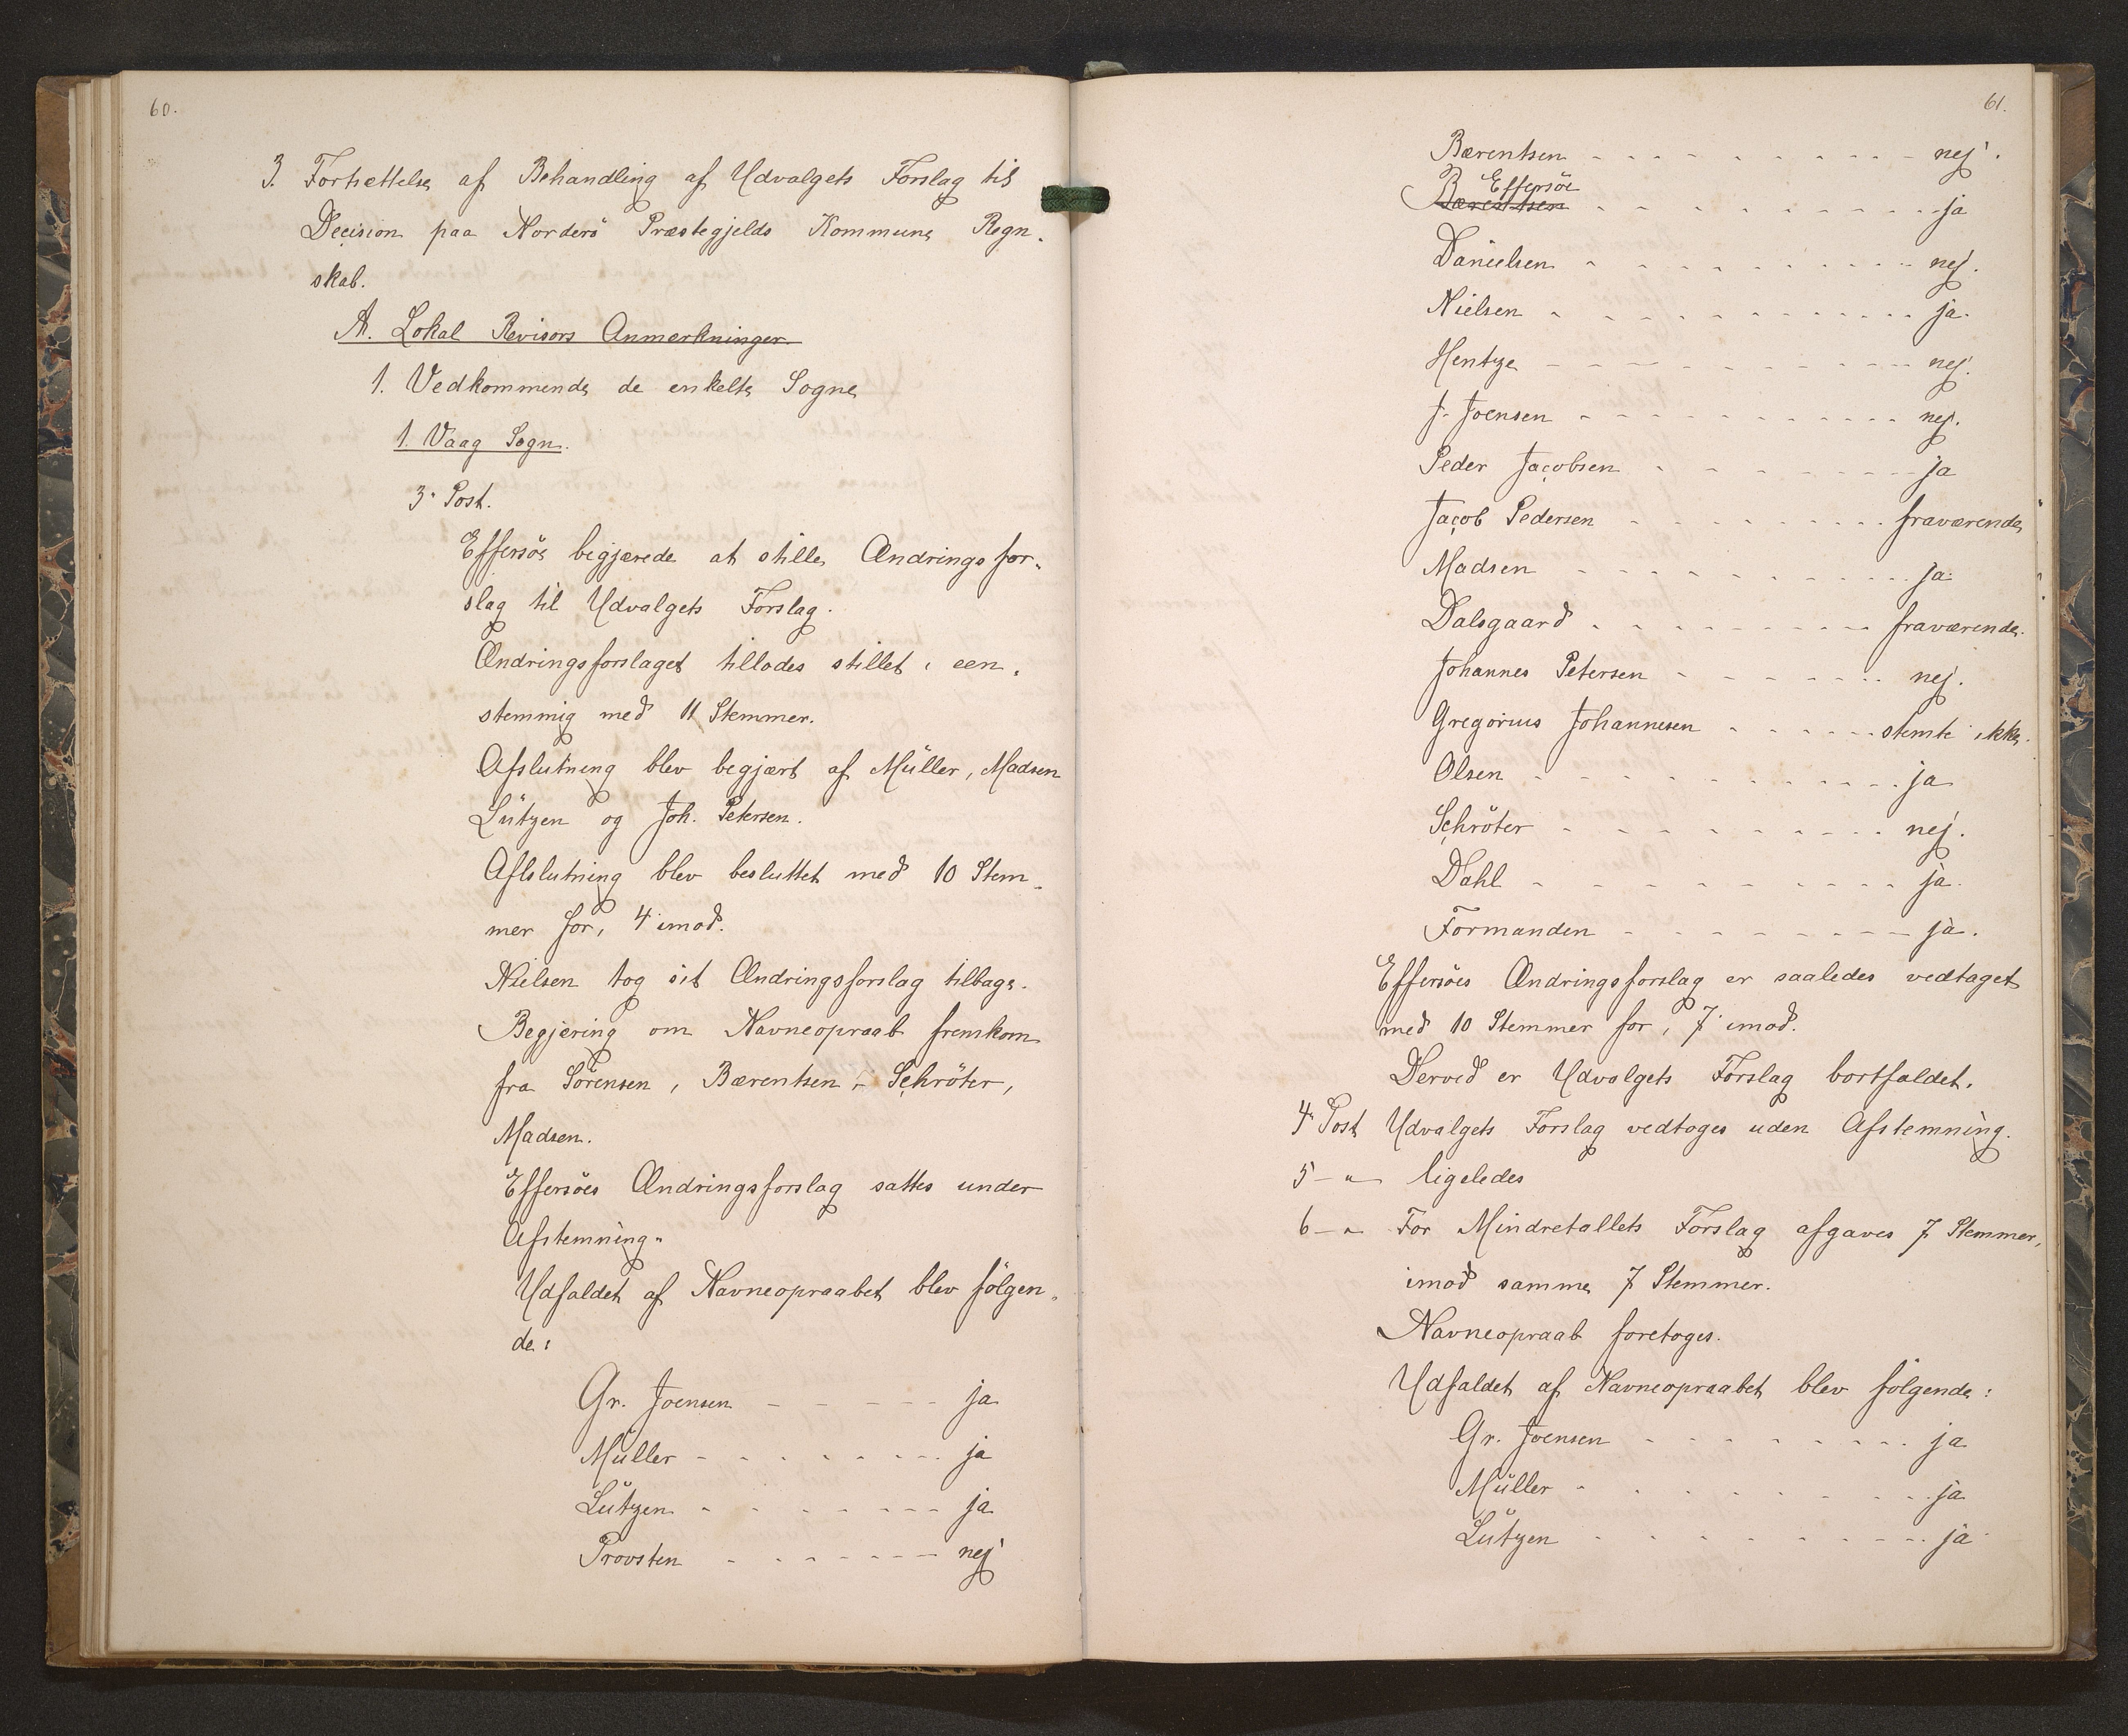 60.
3. Fortsættelse af Behandling af Udvalgets Forslag til
Decision paa Norderö Præstegjelds Kommunes Regn-
skab.
A. Lokal Revisors Anmærkninger.
1. Vedkommende de enkelte Sogne
1. Vaag Sogn.
3' Post.
Effersöe begjærede at stille Ændringsfor-
slag til Udvalgets Forslag.
Ændringsforslaget tillodes stillet, een-
stemmig med 11 Stemmer.
Afslutning blev begjært af Müller, Madsen
Lützen og Joh. Petersen.
Aflslutning blev besluttet med 10 Stem-
mer for, 4 imod.
Nielsen tog sit Ændringsforslag tilbage.
Begjæring om Navneopraab fremkom
fra Sörensen, Bærentsen, Schröter,
Madsen.
Effersöes Ændringsforslag sattes under
Afstemning.
Udfaldet af Navneopraabet blev fölgen-
de:
Gr. Joensen - - - - - ja
Müller - - - - - - - ja
Lützen - - - - - - - ja
Provsten - - - - - - nej
61.
Bærentsen - - - - - - - - - - nej.
Effersöe
Bærentsen - - - - - - - - - - ja
Danielsen - - - - - - - - - - nej.
Nielsen - - - - - - - - - - ja.
Hentze - - - - - - - - - - nej.
J. Joensen - - - - - - - - - - nej.
Peder Jacobsen - - - - - - - ja
Jacob Pedersen - - - - - - - fraværende
Madsen - - - - - - - - - - ja.
Dalsgaard - - - - - - - - fraværende.
Johannes Petersen - - - - - - - nej.
Gregorius Johannesen - - - - - - stemte ikke.
Olsen - - - - - - - - - - ja
Schröter - - - - - - - - - nej.
Dahl - - - - - - - - - - ja.
Formanden - - - - - - - - ja.
Effersöes Ændringsforslag er saaledes vedtaget
med 10 Stemmer for, 7 imod.
Derved er Udvalgets Forslag bortfaldet.
4' Post Udvalgets Forslag vedtoges uden Afstemning.
5 - " - ligeledes
6 - " - For Mindretallets Forslag afgaves 7 Stemmer,
imod samme 7 Stemmer.
Navneopraab foretoges.
Udfaldet af Navneopraabet blev fölgende:
Gr. Joensen - - - - - - - - - ja
Müller - - - - - - - - - ja
Lützen - - - - - - - - - ja